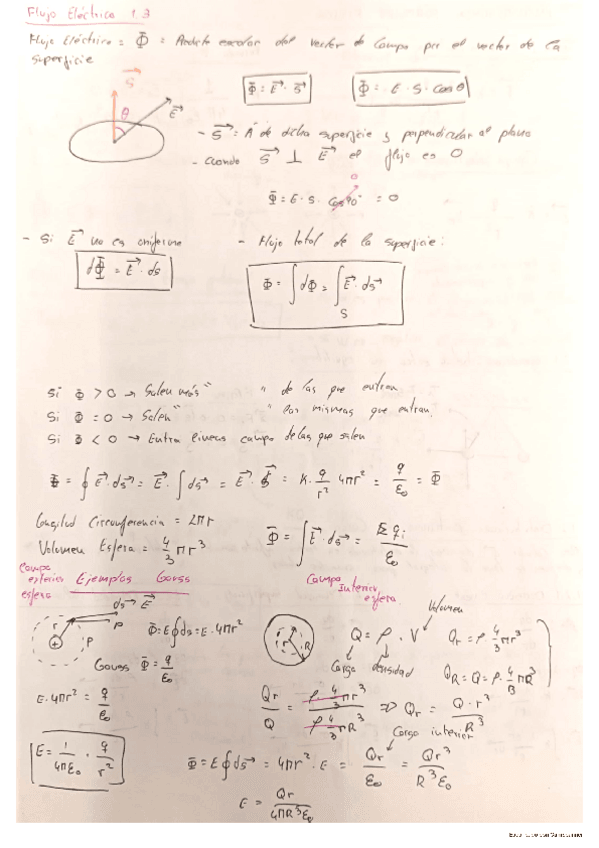 Flujo Eléctrico 1.3
Flujo Eléctrico = Φ = escalar del vector de Campo por el vector de la
superficie
S
θ
E
Φ = E · S
Φ = E · S · cos θ
- S = A de dicha superficie y perpendicular al plano
- cuando S ⊥ E el flujo es 0
0
Φ = E · S · cos 90° = 0
- Si E no es uniforme
dΦ = E · ds
- Flujo total de la superficie:
Φ = ∫ dΦ = ∫_S E · ds
Si Φ > 0 → Salen más " " de las que entran.
Si Φ = 0 → Salen " " las mismas que entran.
Si Φ < 0 → Entra lineas campo de las que salen
Φ = ∮ E · ds = E · ∫ ds = E · S = K · q/r² 4πr² = q/ε₀ = Φ
Longitud Circunferencia = 2πr
Volumen Esfera = 4/3 πr³
Φ = ∫ E · ds = Σ qi/ε₀
Campo exterior esfera
Ejemplos Gauss
Campo interior esfera
ds → E
r
P
P
+
Φ = E ∮ ds = E · 4πr²
Gauss Φ = q/ε₀
E · 4πr² = q/ε₀
E = 1/4πε₀ · q/r²
r
R
Volumen
Q = ρ · V
Carga densidad
Qr = ρ · 4/3 πr³
QR = Q = ρ · 4/3 πR³
Qr/Q = ρ · 4/3 πr³ / ρ · 4/3 πR³ ⇒ Qr = Q · r³/R³
Carga interior
Φ = E ∮ ds = 4πr² · E = Qr/ε₀ = Qr³/R³ε₀
E = Qr/4πR³ε₀